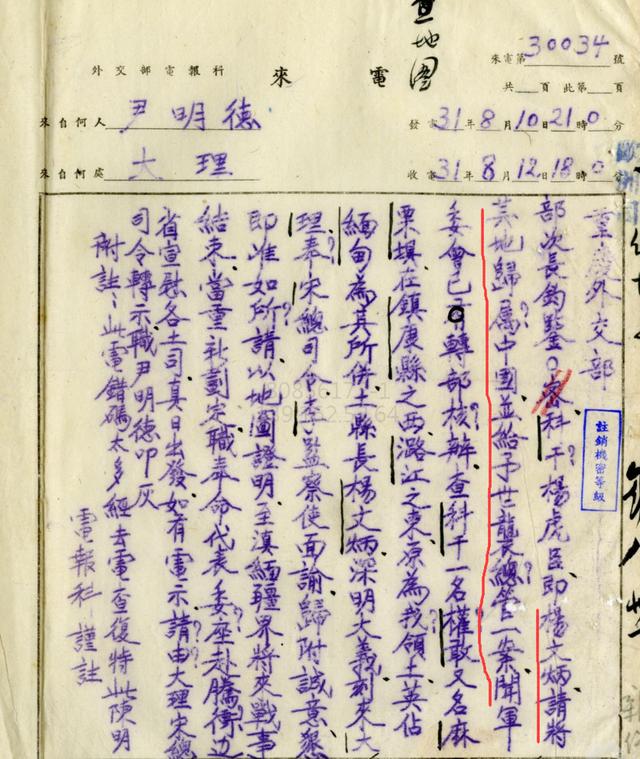 查地图
來電第30034號
外交部電報科
來電
共 頁 此第 頁
來自何人 尹明德
發電31年8月10日21時0分
來自何處 大理
收電31年8月12日18時0分
重慶外交部
部次長鈞鑒○密科干楊虎臣即楊文炳請將
其地歸屬中國並給予世襲總管一案聞軍
委會已○轉部核辦查科干一名權敢又名麻
栗壩在鎮康縣之西潞江之東原為我領土英佔
緬甸為其所併土縣長楊文炳深明大義刻來大
理奉宋總司令李監察使面諭歸附誠意懇
即准如所請以地圖證明至滇緬疆界將來戰事
結束當重社劃定職奉命代表委座赴騰衝邊
省宣慰各土司真日出發如有電示請由大理宋總
司令轉示職尹明德叩灰
附註：此電錯碼太多經去電查復特此陳明
電報科謹註
註銷機密等級